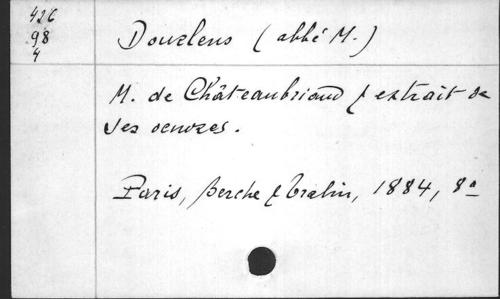 426
98
4
Douzlens (abbé M.)
M. de Châteaubriand & extrait de
ses oeuvres.
Paris, Berche & Tralin, 1884, 8º